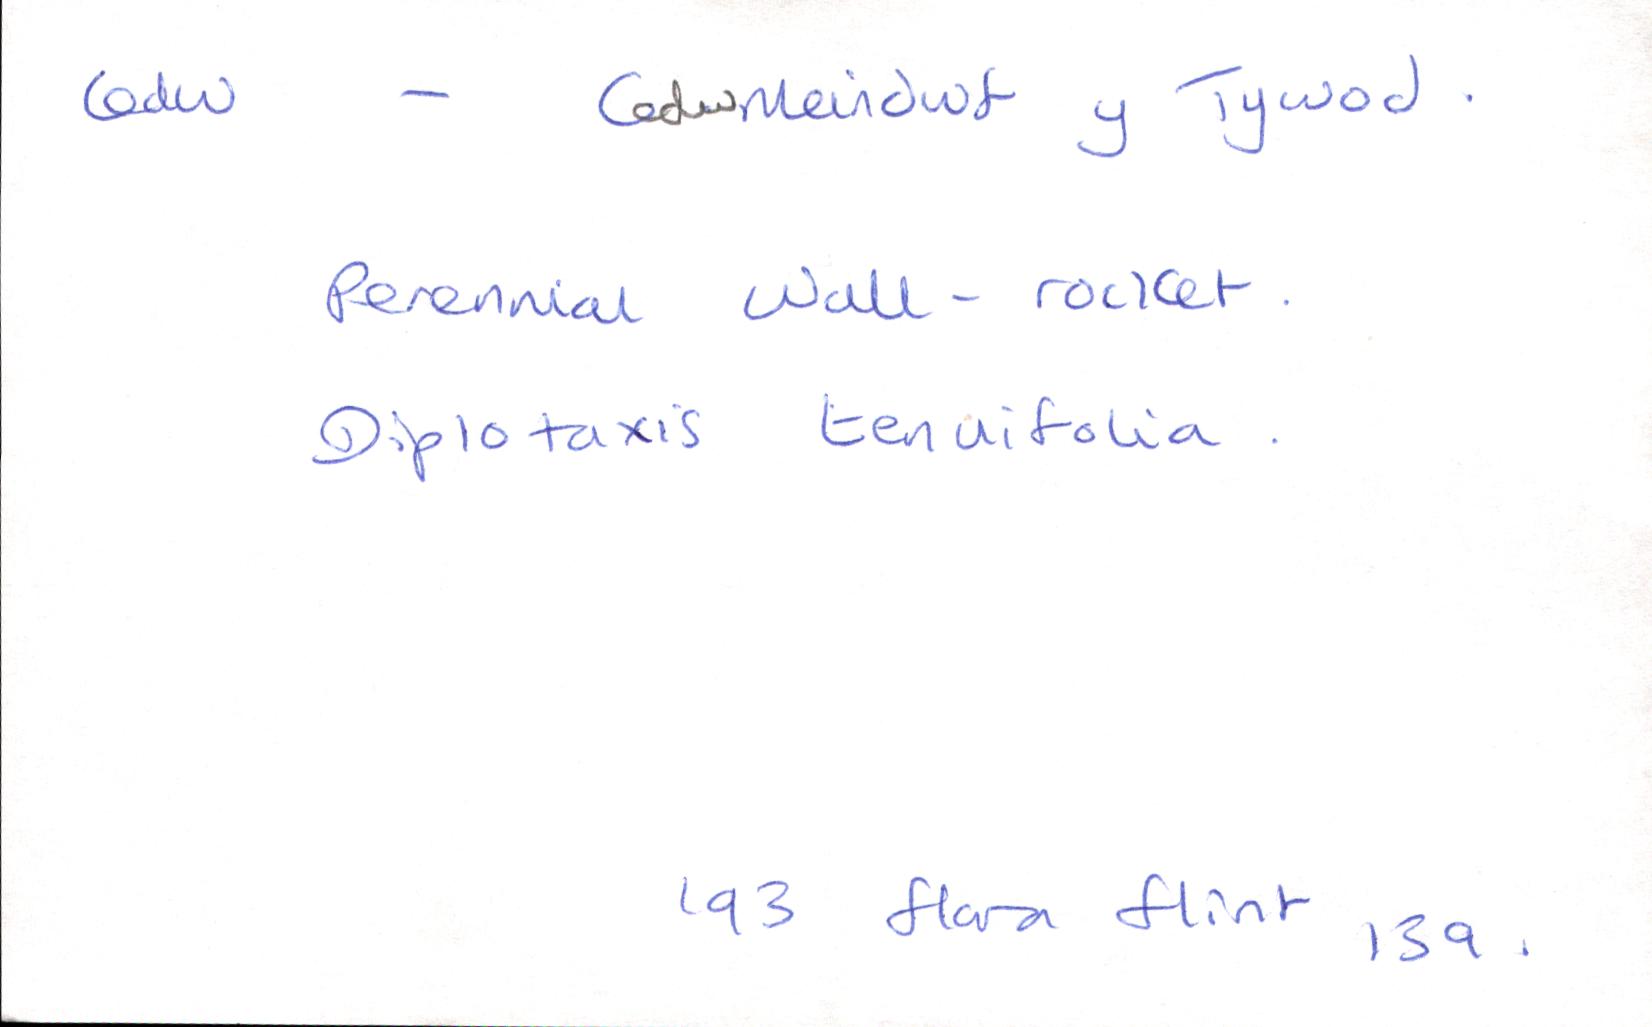 Cedw - Cedwmeindwf y Tywod.
Perennial Wall-rocket.
Diplotaxis tenuifolia.
'93 flora flint 139.